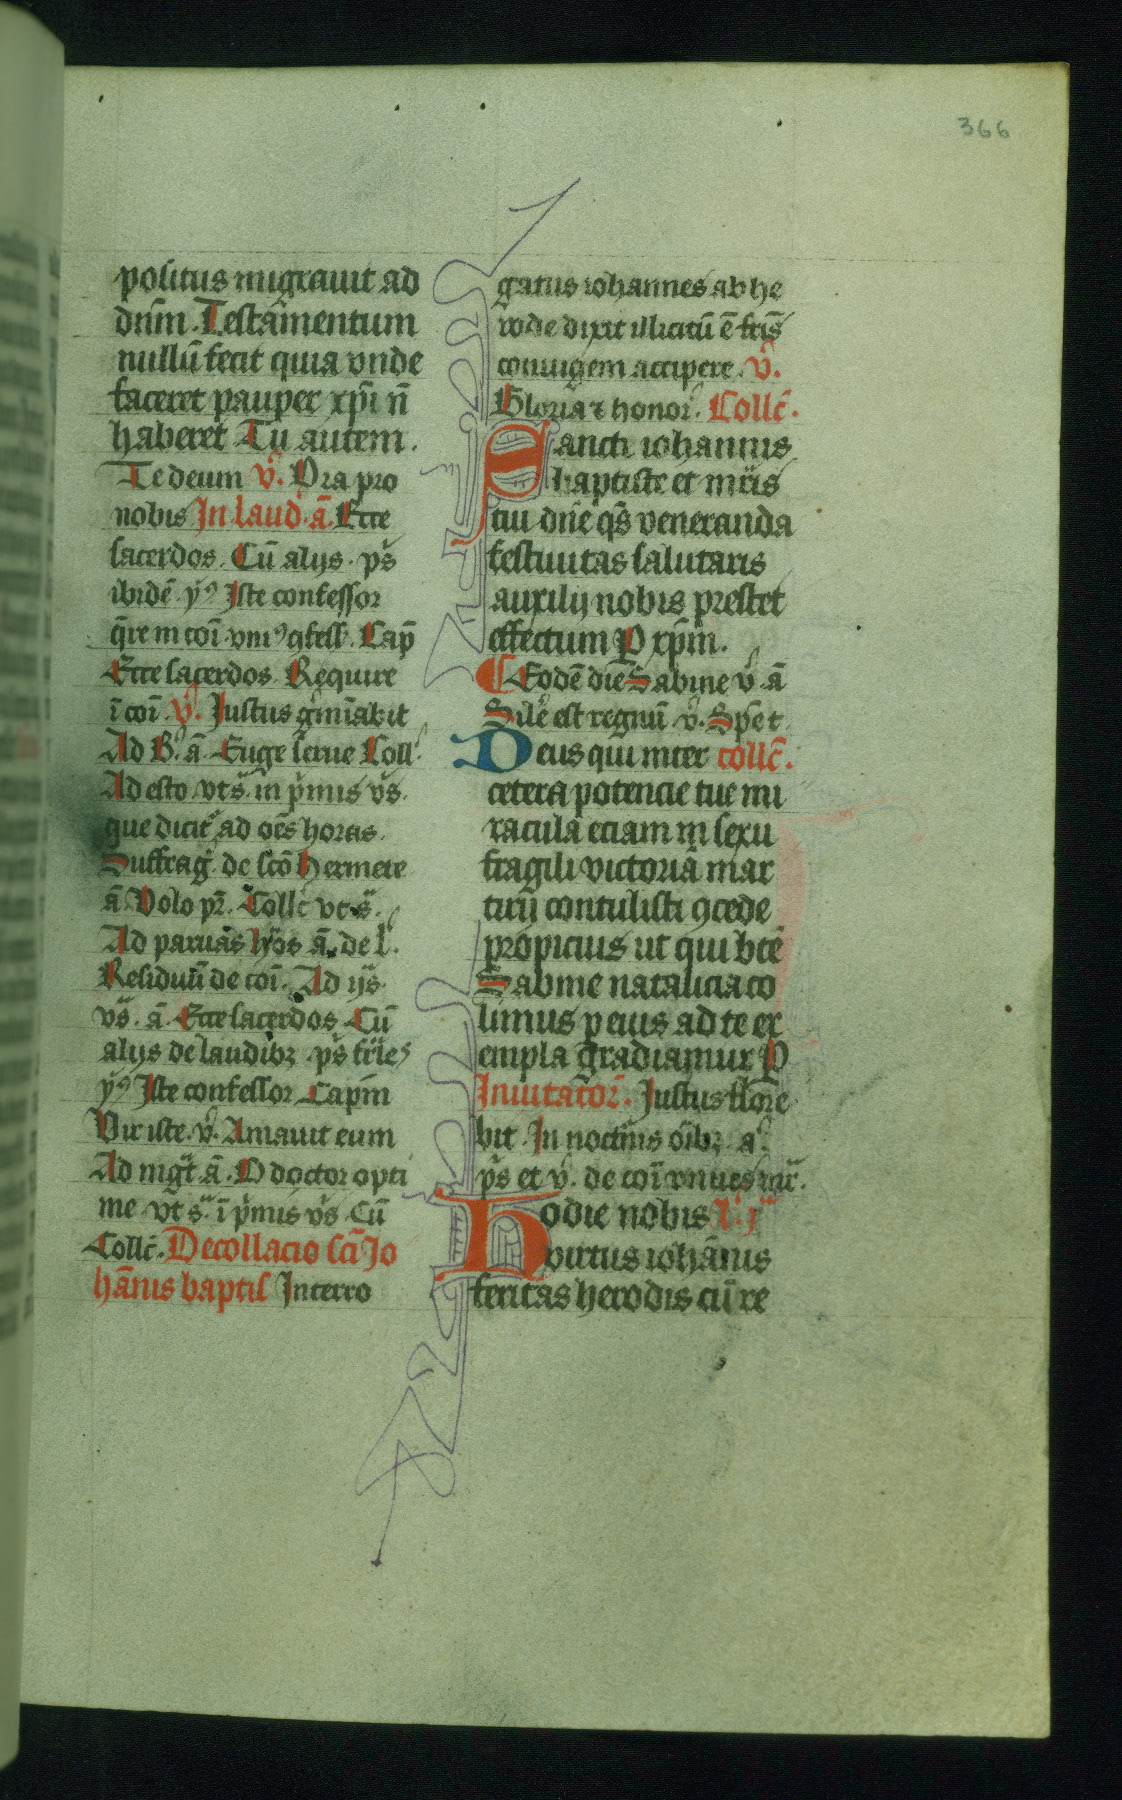 366
positus migrauit ad
dnm̄. Testamentum
nullū fecit quia vnde
faceret pauper xp̄i n̄
haberet Tu autem.
Te deum v̊. Ora pro
nobis In laud. ā. Ecce
sacerdos. Cū alijs. ps̄
ibidē. yꝰ Iste confessor
q̄re in coī. vniꝰ ꝯfess. Cap̄
Ecce sacerdos. Require
ī coī. v̊. Justus gīnabit
Ad B. ā. Euge serue Coll
Ad esto vt s̄. in p̄mis vs̄.
que dicit̄ ad oēs horas.
Suffraḡ. de scō hermete
ā. Volo pr̄. Collc̄ vt s̄.
Ad paruas ā. de l.
Residuū de coī. Ad ijs
vs̄. ā. Ecce sacerdos Cū
alijs de laudibꝫ ps̄
yꝰ Iste confessor Capm̄
Vir iste. v̊. Amauit eum
Ad mgt̄. ā. O doctor opti
me vt s̄. ī p̄mis vs̄ Cū
Collc̄. Decollacio sc̄i Jo
hānis baptis Interro
gatus iohannes ab he
rode dixit illicitū ē fr̄is
coniugem accipere. v̊.
Gloria ⁊ honor̄. Collc̄.
Sancti iohannis
baptiste et mr̄is
tui dn̄e qs̄ veneranda
festiuitas salutaris
auxilij nobis prestet
effectum P xp̄m.
Eodē die Sabine v̊ ā
Sil̄e est regnū v̊. Spē t
Deus qui inter collc̄.
cetera potencie tue mi
racula eciam in sexu
fragili victoriā mar
tirij contulisti ꝯcede
propicius ut qui btē
Sabine natalicia co
limus p eius ad te ex
empla gradiamur P
Inuitator̄. Justus flore
bit In noctn̄is oībꝫ a.
ps̄ et v̊. de coī vniꝰ mr̄.
Hodie nobis
virtus iohānis
feritas herodis cū re